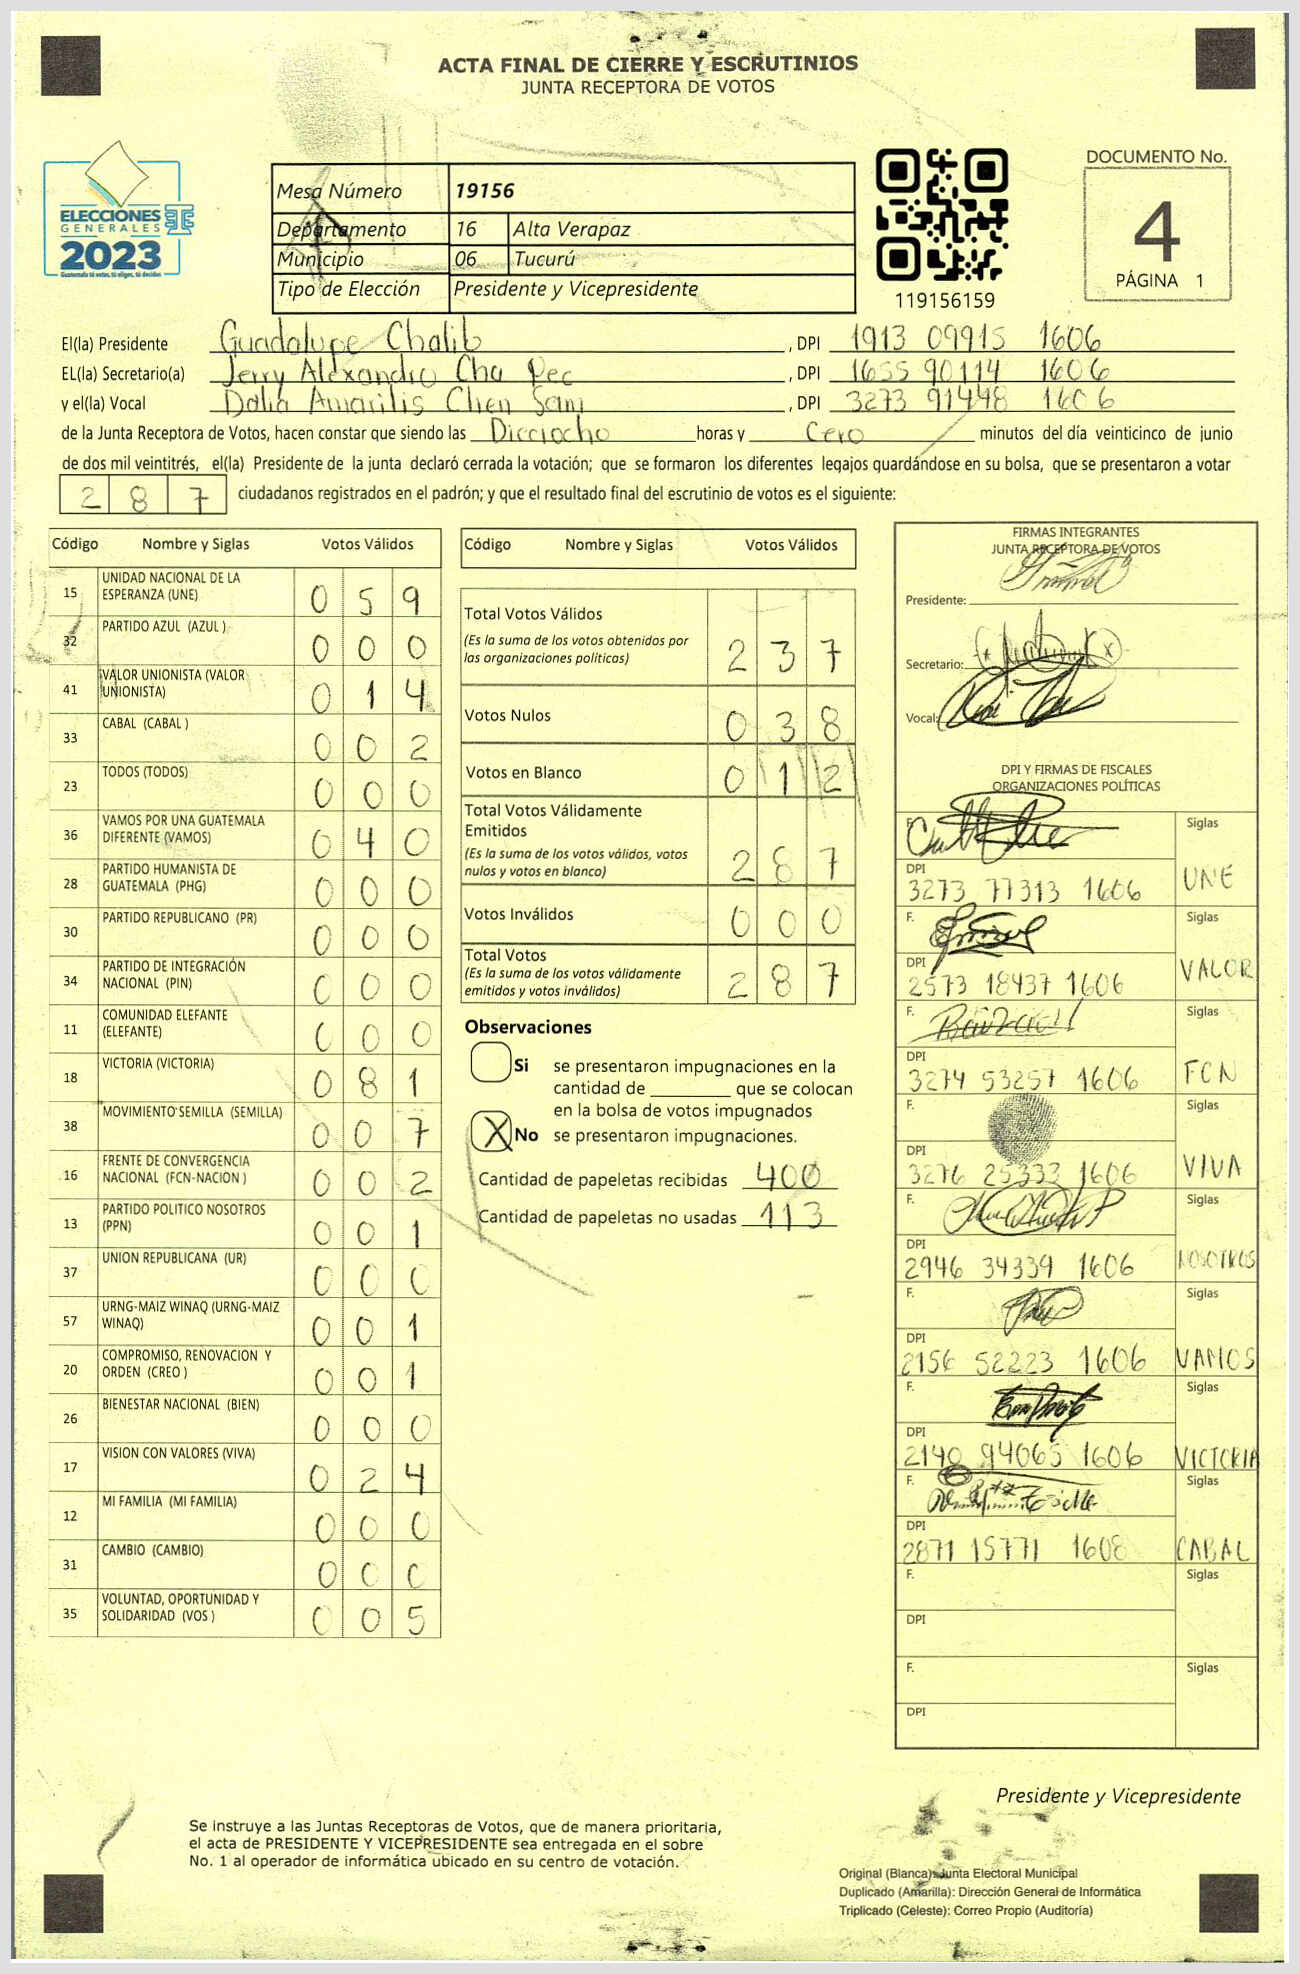 ACTA FINAL DE CIERRE Y ESCRUTINIOS
JUNTA RECEPTORA DE VOTOS
ELECCIONES
GENERALES
2023
Guatemala tú votas, tú eliges, tú decides
TSE
Mesa Número 19156
Departamento 16 Alta Verapaz
Municipio 06 Tucurú
Tipo de Elección Presidente y Vicepresidente
119156159
DOCUMENTO No.
4
PÁGINA 1
El(la) Presidente Guadalupe Chalib , DPI 1913 09915 1606
EL(la) Secretario(a) Jerry Alexandro Cha Pec , DPI 1655 90114 1606
y el(la) Vocal Dalia Amarilis Chen Sam , DPI 3273 91448 1606
de la Junta Receptora de Votos, hacen constar que siendo las Dieciocho horas y Cero minutos del día veinticinco de junio
de dos mil veintitrés, el(la) Presidente de la junta declaró cerrada la votación; que se formaron los diferentes legajos guardándose en su bolsa, que se presentaron a votar
287 ciudadanos registrados en el padrón; y que el resultado final del escrutinio de votos es el siguiente:
Código Nombre y Siglas Votos Válidos
15 UNIDAD NACIONAL DE LA ESPERANZA (UNE) 0 5 9
32 PARTIDO AZUL (AZUL ) 0 0 0
41 VALOR UNIONISTA (VALOR UNIONISTA) 0 1 4
33 CABAL (CABAL ) 0 0 2
23 TODOS (TODOS) 0 0 0
36 VAMOS POR UNA GUATEMALA DIFERENTE (VAMOS) 0 4 0
28 PARTIDO HUMANISTA DE GUATEMALA (PHG) 0 0 0
30 PARTIDO REPUBLICANO (PR) 0 0 0
34 PARTIDO DE INTEGRACIÓN NACIONAL (PIN) 0 0 0
11 COMUNIDAD ELEFANTE (ELEFANTE) 0 0 0
18 VICTORIA (VICTORIA) 0 8 1
38 MOVIMIENTO SEMILLA (SEMILLA) 0 0 7
16 FRENTE DE CONVERGENCIA NACIONAL (FCN-NACION ) 0 0 2
13 PARTIDO POLITICO NOSOTROS (PPN) 0 0 1
37 UNION REPUBLICANA (UR) 0 0 0
57 URNG-MAIZ WINAQ (URNG-MAIZ WINAQ) 0 0 1
20 COMPROMISO, RENOVACION Y ORDEN (CREO ) 0 0 1
26 BIENESTAR NACIONAL (BIEN) 0 0 0
17 VISION CON VALORES (VIVA) 0 2 4
12 MI FAMILIA (MI FAMILIA) 0 0 0
31 CAMBIO (CAMBIO) 0 0 0
35 VOLUNTAD, OPORTUNIDAD Y SOLIDARIDAD (VOS ) 0 0 5
Código Nombre y Siglas Votos Válidos
Total Votos Válidos 2 3 7
(Es la suma de los votos obtenidos por
las organizaciones políticas)
Votos Nulos 0 3 8
Votos en Blanco 0 1 2
Total Votos Válidamente
Emitidos 2 8 7
(Es la suma de los votos válidos, votos
nulos y votos en blanco)
Votos Inválidos 0 0 0
Total Votos 2 8 7
(Es la suma de los votos válidamente
emitidos y votos inválidos)
Observaciones
Si se presentaron impugnaciones en la
cantidad de ________ que se colocan
en la bolsa de votos impugnados
X No se presentaron impugnaciones.
Cantidad de papeletas recibidas 400
Cantidad de papeletas no usadas 113
FIRMAS INTEGRANTES
JUNTA RECEPTORA DE VOTOS
Presidente:
Secretario:
Vocal:
DPI Y FIRMAS DE FISCALES
ORGANIZACIONES POLÍTICAS
F. Siglas
DPI 3273 77313 1606 UNE
F. Siglas
DPI 2573 18437 1606 VALOR
F. Siglas
DPI 3274 53257 1606 FCN
F. Siglas
DPI 3276 25333 1606 VIVA
F. Siglas
DPI 2946 34339 1606 NOSOTROS
F. Siglas
DPI 2156 52223 1606 VAMOS
F. Siglas
DPI 2140 94065 1606 VICTORIA
F. Siglas
DPI 2871 15771 1608 CABAL
F. Siglas
DPI
F. Siglas
DPI
Presidente y Vicepresidente
Se instruye a las Juntas Receptoras de Votos, que de manera prioritaria,
el acta de PRESIDENTE Y VICEPRESIDENTE sea entregada en el sobre
No. 1 al operador de informática ubicado en su centro de votación.
Original (Blanca): Junta Electoral Municipal
Duplicado (Amarilla): Dirección General de Informática
Triplicado (Celeste): Correo Propio (Auditoría)